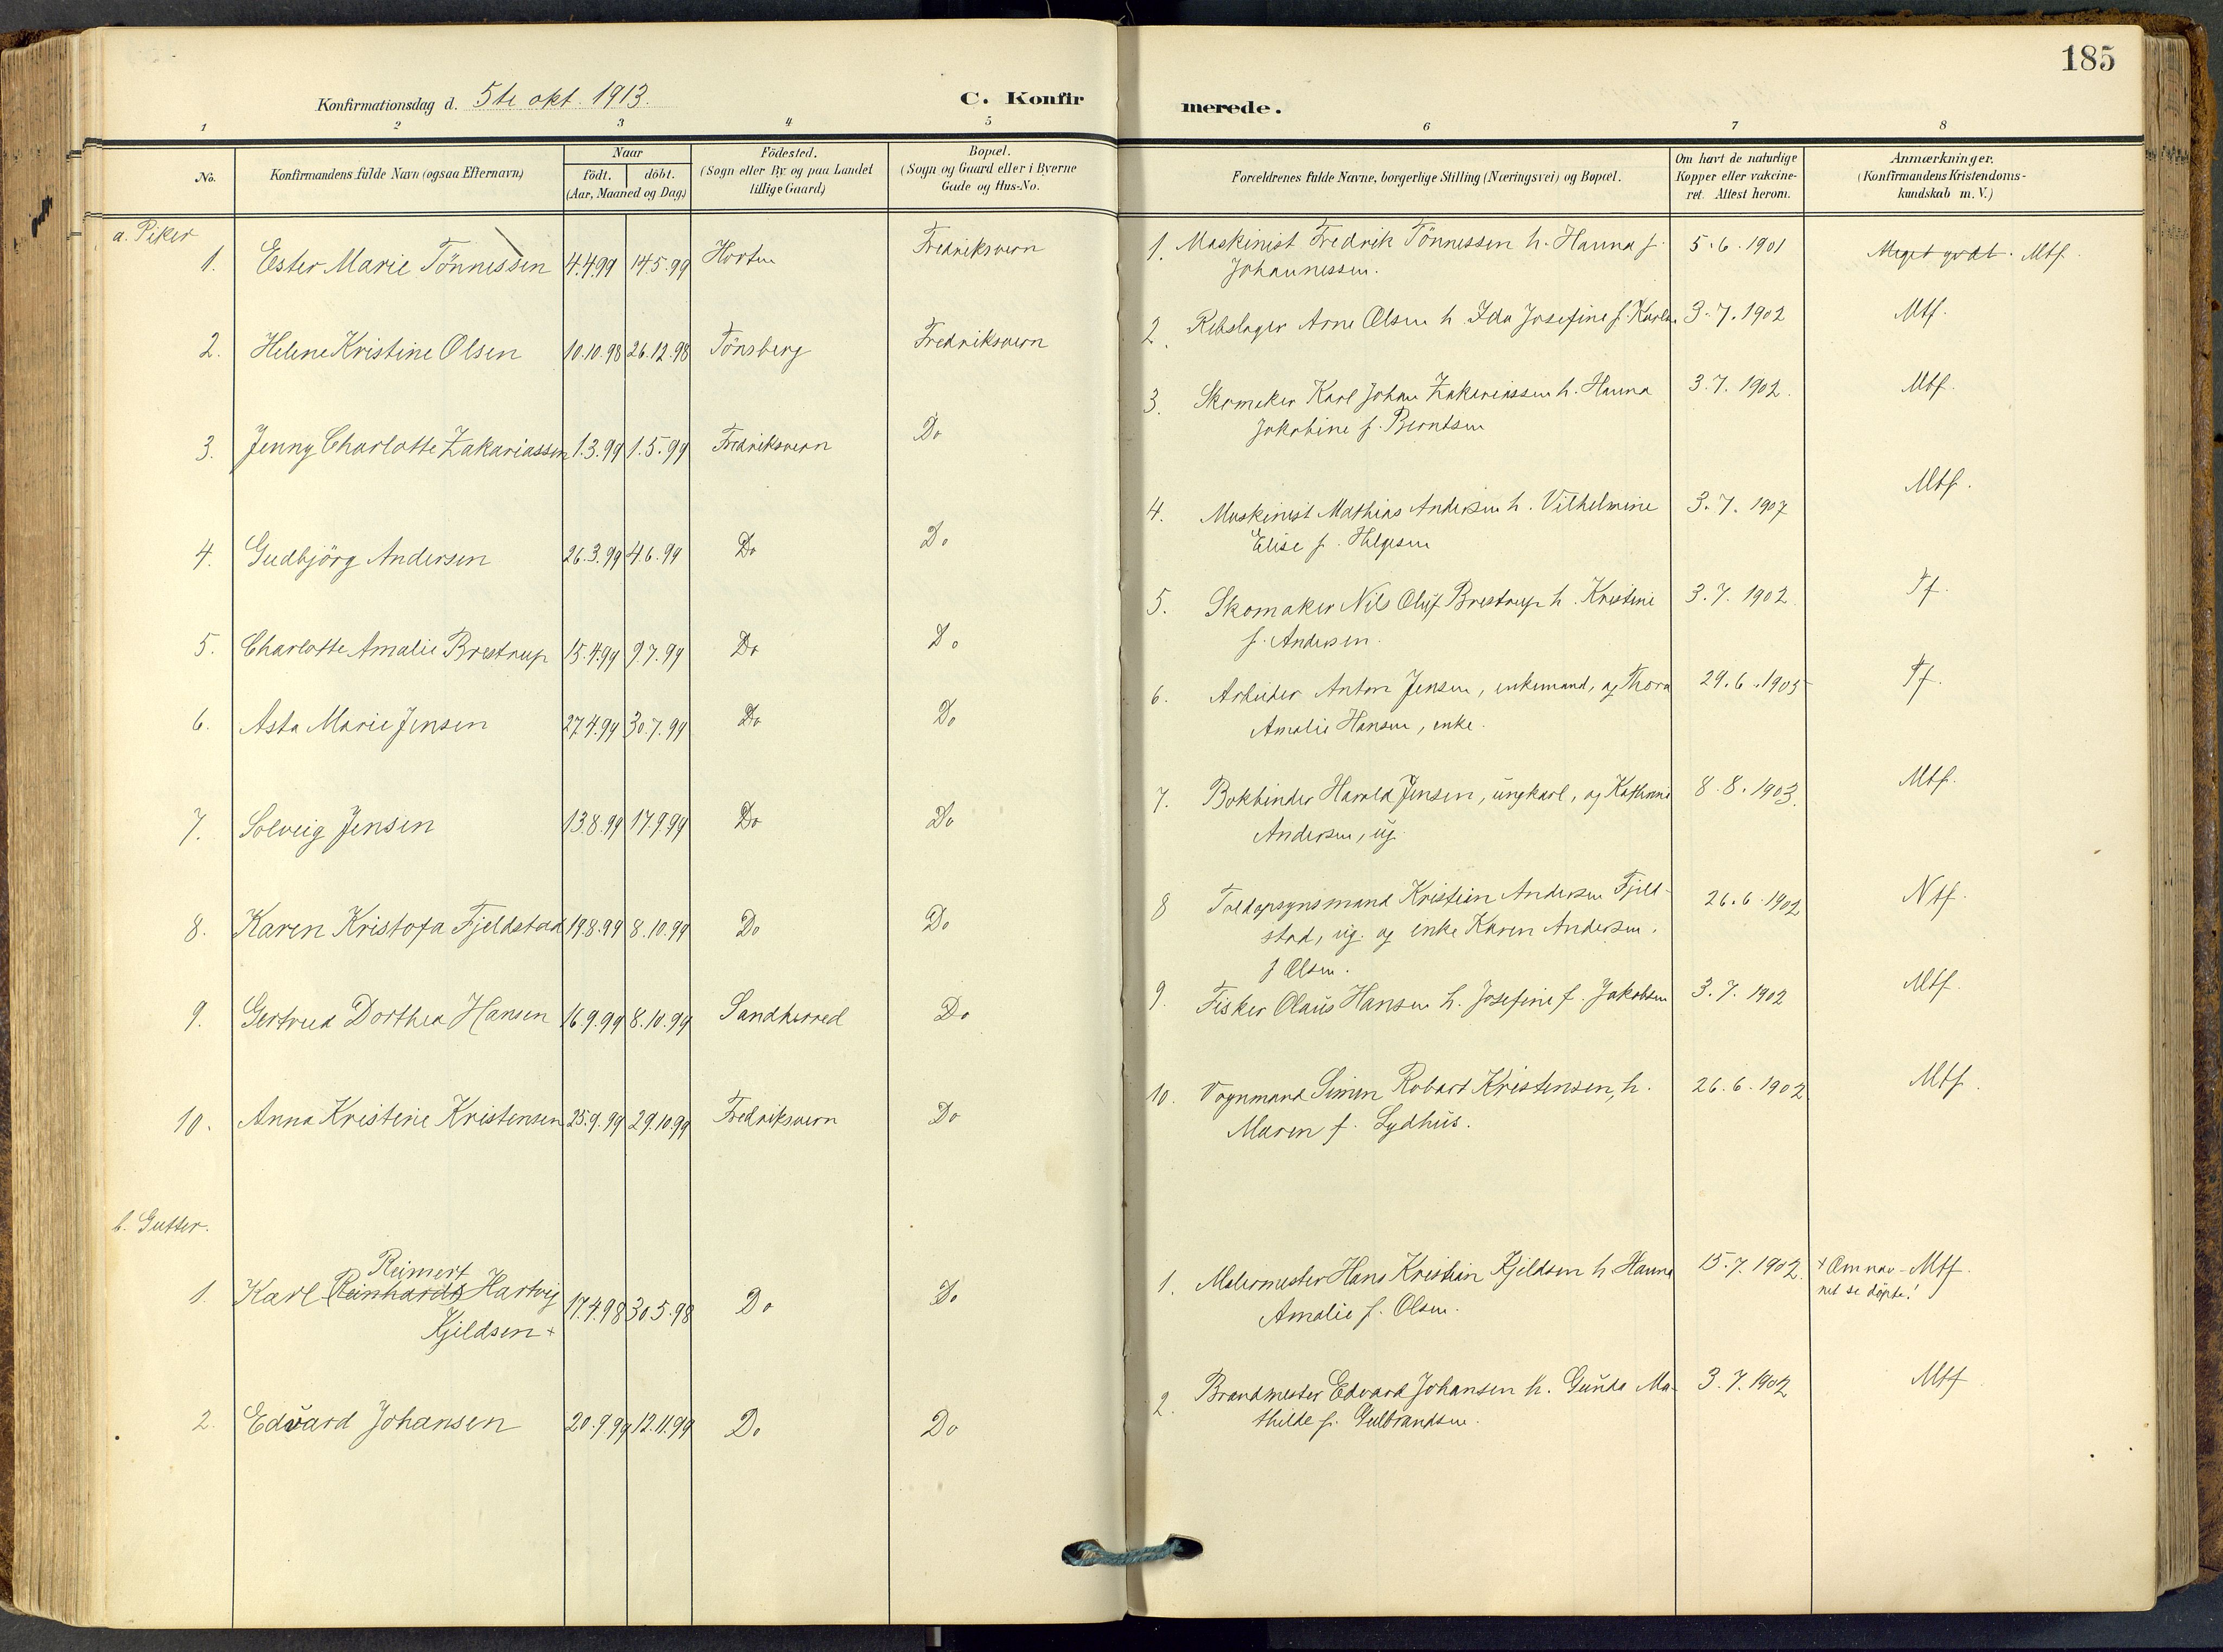 185
Konfirmationsdag d. 5te okt. 1913.
C. Konfirmerede.
1 2 3 4 5 6 7 8
No.
Konfirmandens fulde Navn (ogsaa Efternavn)
Naar
födt. döbt.
(Aar, Maaned og Dag)
Födested.
(Sogn eller By og paa Landet
tillige Gaard)
Bopæl.
(Sogn og Gaard eller i Byerne
Gade og Hus-No.
Forældrenes fulde Navne, borgerlige Stilling (Næringsvei) og Bopæl.
Om havt de naturlige
Kopper eller vakcine-
ret. Attest herom.
Anmærkninger.
(Konfirmandens Kristendoms-
kundskab m. V.)
a. Piker
1. Ester Marie Tönnessen 4.4.99 14.5.99 Horten Fredriksvern 1. Maskinist Fredrik Tönnessen h. Hanna f. 5.6.1901 Meget godt. Mtf.
Johannessen.
2. Helene Kristine Olsen 10.10.98 26.12.98 Tönsberg Fredriksvern 2. Rebslager Arne Olsen h Ida Josefine f. Karlsen 3.7.1902 Mtf.
3. Jenny Charlotte Zakariassen 1.3.99 1.5.99 Fredriksvern Do 3. Skomaker Karl Johan Zakariassen h. Hanna 3.7.1902. Mtf.
Jakobine f. Berntsen
4. Gudbjörg Andersen 26.3.99 4.6.99 Do Do 4. Maskinist Mathias Andersen h. Vilhelmine 3.7.1907 Mtf.
Elise f. Helgesen
5. Charlotte Amalie Brestrup 15.4.99 9.7.99 Do Do 5. Skomaker Nils Oluf Brestrup h. Kristine 3.7.1902 Tf.
f. Andersen.
6. Asta Marie Jensen 27.4.99 30.7.99 Do Do 6. Arbeider Anton Jensen, enkemand, og Thora 29.6.1905 Tf.
Amalie Hansen, enke.
7. Solveig Jensen 13.8.99 17.9.99 Do Do 7. Bokbinder Harald Jensen, ungkarl, og Kathrine 8.8.1903. Mtf.
Andersen, ug.
8. Karen Kristofa Fjeldstad 19.8.99 8.10.99 Do Do 8 Toldopsynsmand Kristian Andersen Fjeld- 26.6.1902 Ntf.
stad, ug. og enke Karen Andersen.
f Olsen.
9. Gertrud Dorthea Hansen 16.9.99 8.10.99 Sandherred Do 9. Fisker Olaus Hansen h. Josefine f. Jakobsen 3.7.1902 Mtf.
10. Anna Kristine Kristensen 25.9.99 29.10.99 Fredriksvern Do 10. Vognmand Simen Robart Kristensen, h. 26.6.1902 Mtf.
Maren f. Lydhus.
b. Gutter.
Reimert
1. Karl Reinhardt Hartvig 17.4.98 30.5.98 Do Do 1. Malermester Hans Kristian Kjeldsen h Hanna 15.7.1902. + Om nav- Mtf.
Kjeldsen + Amalie f. Olsen. net se döpte!
2. Edvard Johansen 20.9.99 12.11.99 Do Do 2. Brandmester Edvard Johansen h. Gunda Ma- 3.7.1902 Mtf
thilde f. Gulbrandsen.